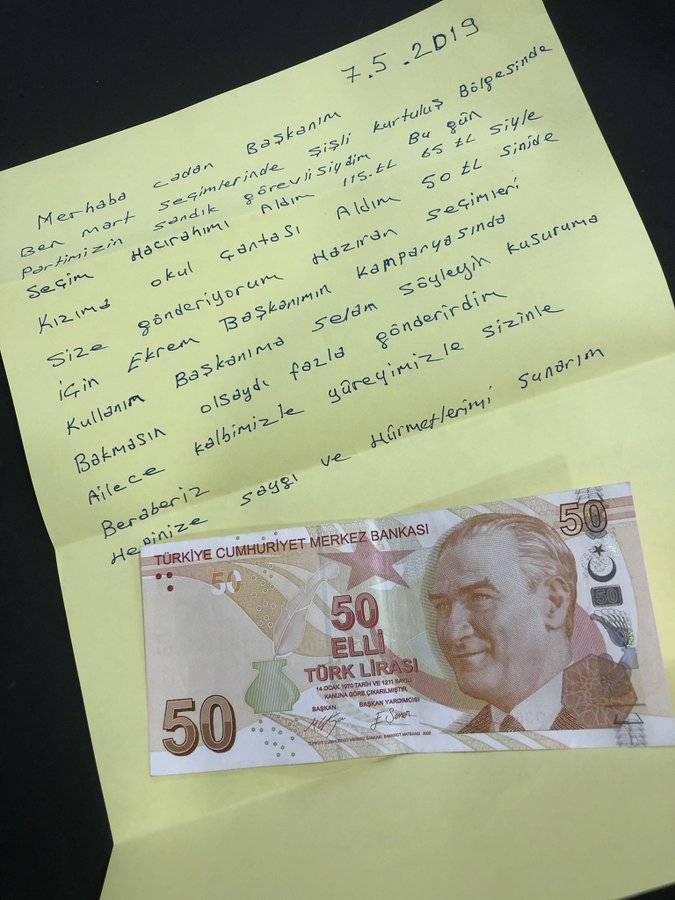 7.5.2019
Merhaba cadan Başkanım
Ben mart seçimlerinde şişli kurtuluş Bölgesinde
Partimizin sandık görevlisiydim Bu gün
Seçim Hacırahımı Aldım 115.TL 65 TL siyle
Kızıma okul çantası Aldım 50 TL sinide
Size gönderiyorum Haziran seçimleri
için Ekrem Başkanımın kampanyasında
Kullanım Başkanıma selam söyleyin kusuruma
Bakmasın olsaydı fazla gönderirdim
Ailece kalbimizle yüreyimizle sizinle
Beraberiz
Hepinize saygı ve Hürmetlerimi sunarım
TÜRKİYE CUMHURİYET MERKEZ BANKASI
50
50
50
ELLİ
TÜRK LİRASI
14 OCAK 1970 TARİH VE 1211 SAYILI
KANUNA GÖRE ÇIKARILMIŞTIR.
BAŞKAN BAŞKAN YARDIMCISI
50
50